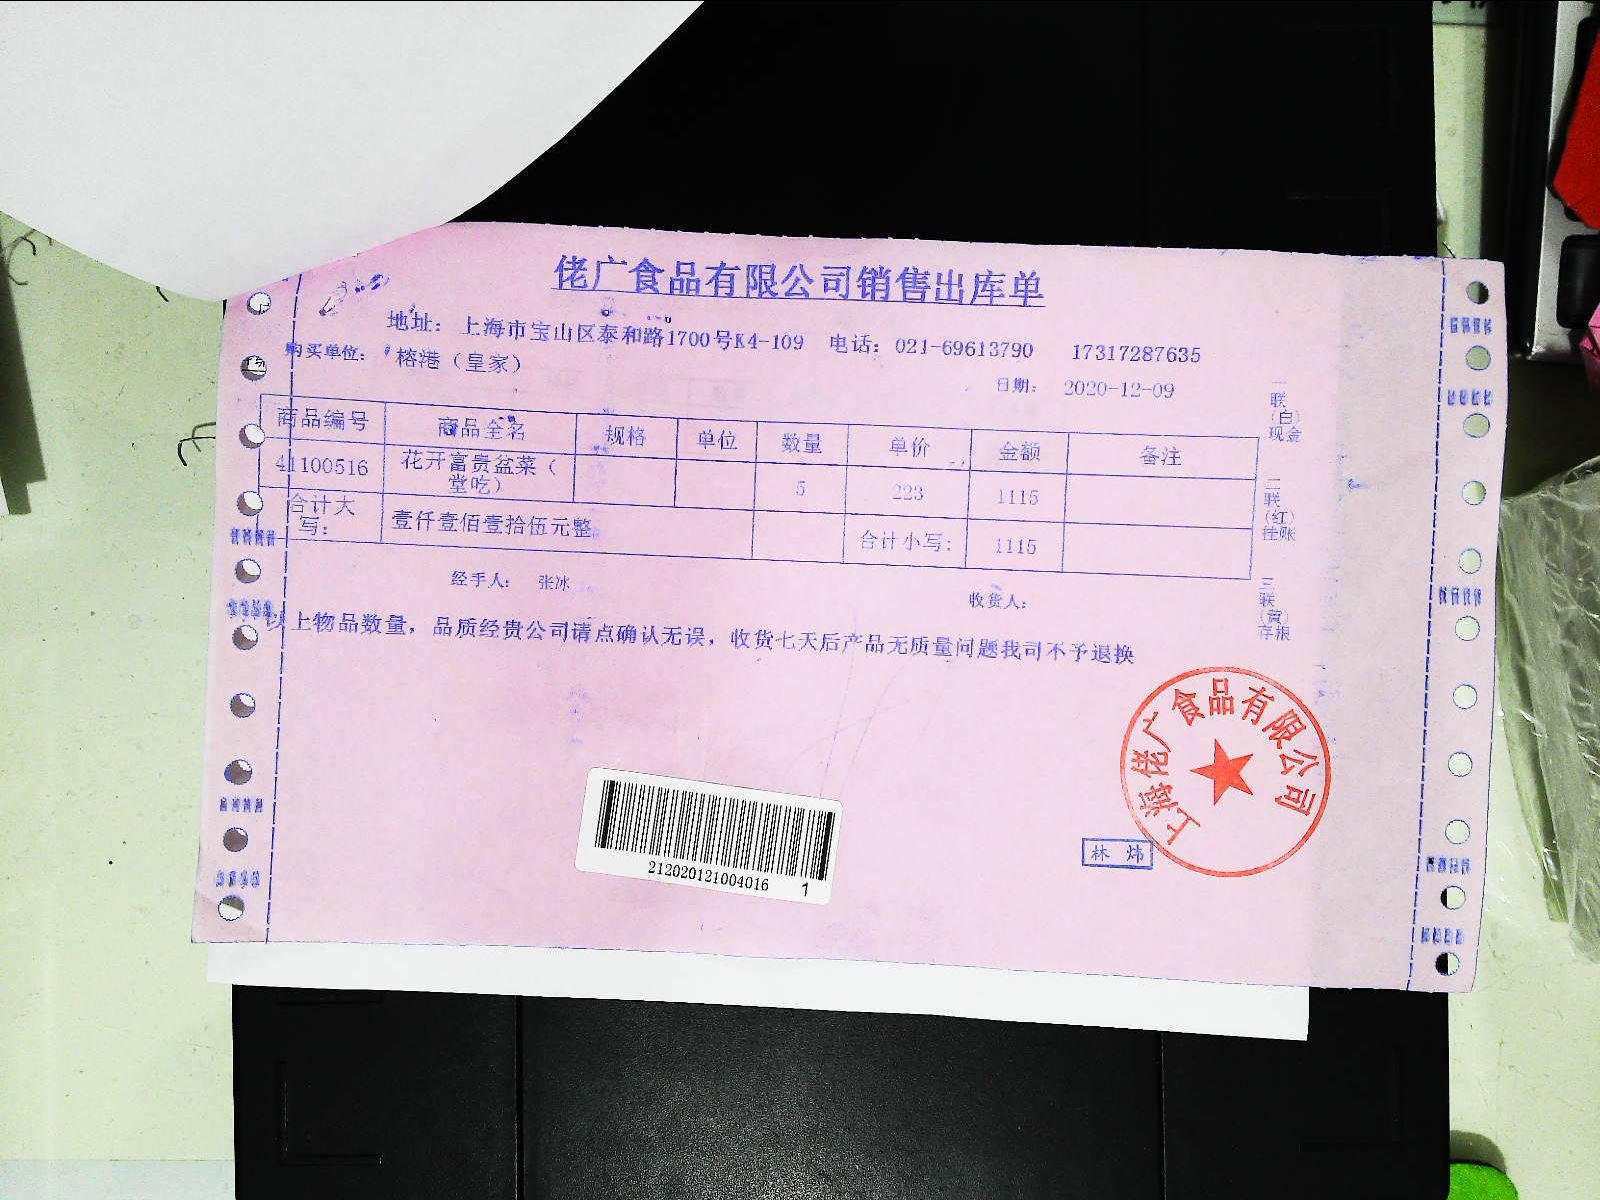 佬广食品有限公司销售出库单
地址：上海市宝山区泰和路1700号K4-109 电话：021-69613790 17317287635
购买单位： 榕港（皇家）
日期： 2020-12-09
商品编号 商品全名 规格 单位 数量 单价 金额 备注
41100516 花开富贵盆菜（堂吃） 5 223 1115
合计大写： 壹仟壹佰壹拾伍元整 合计小写： 1115
经手人： 张冰 收货人：
以上物品数量，品质经贵公司请点确认无误，收货七天后产品无质量问题我司不予退换
一联（白）现金
二联（红）挂账
三联（黄）存根
上海佬广食品有限公司
林 炜
212020121004016 1